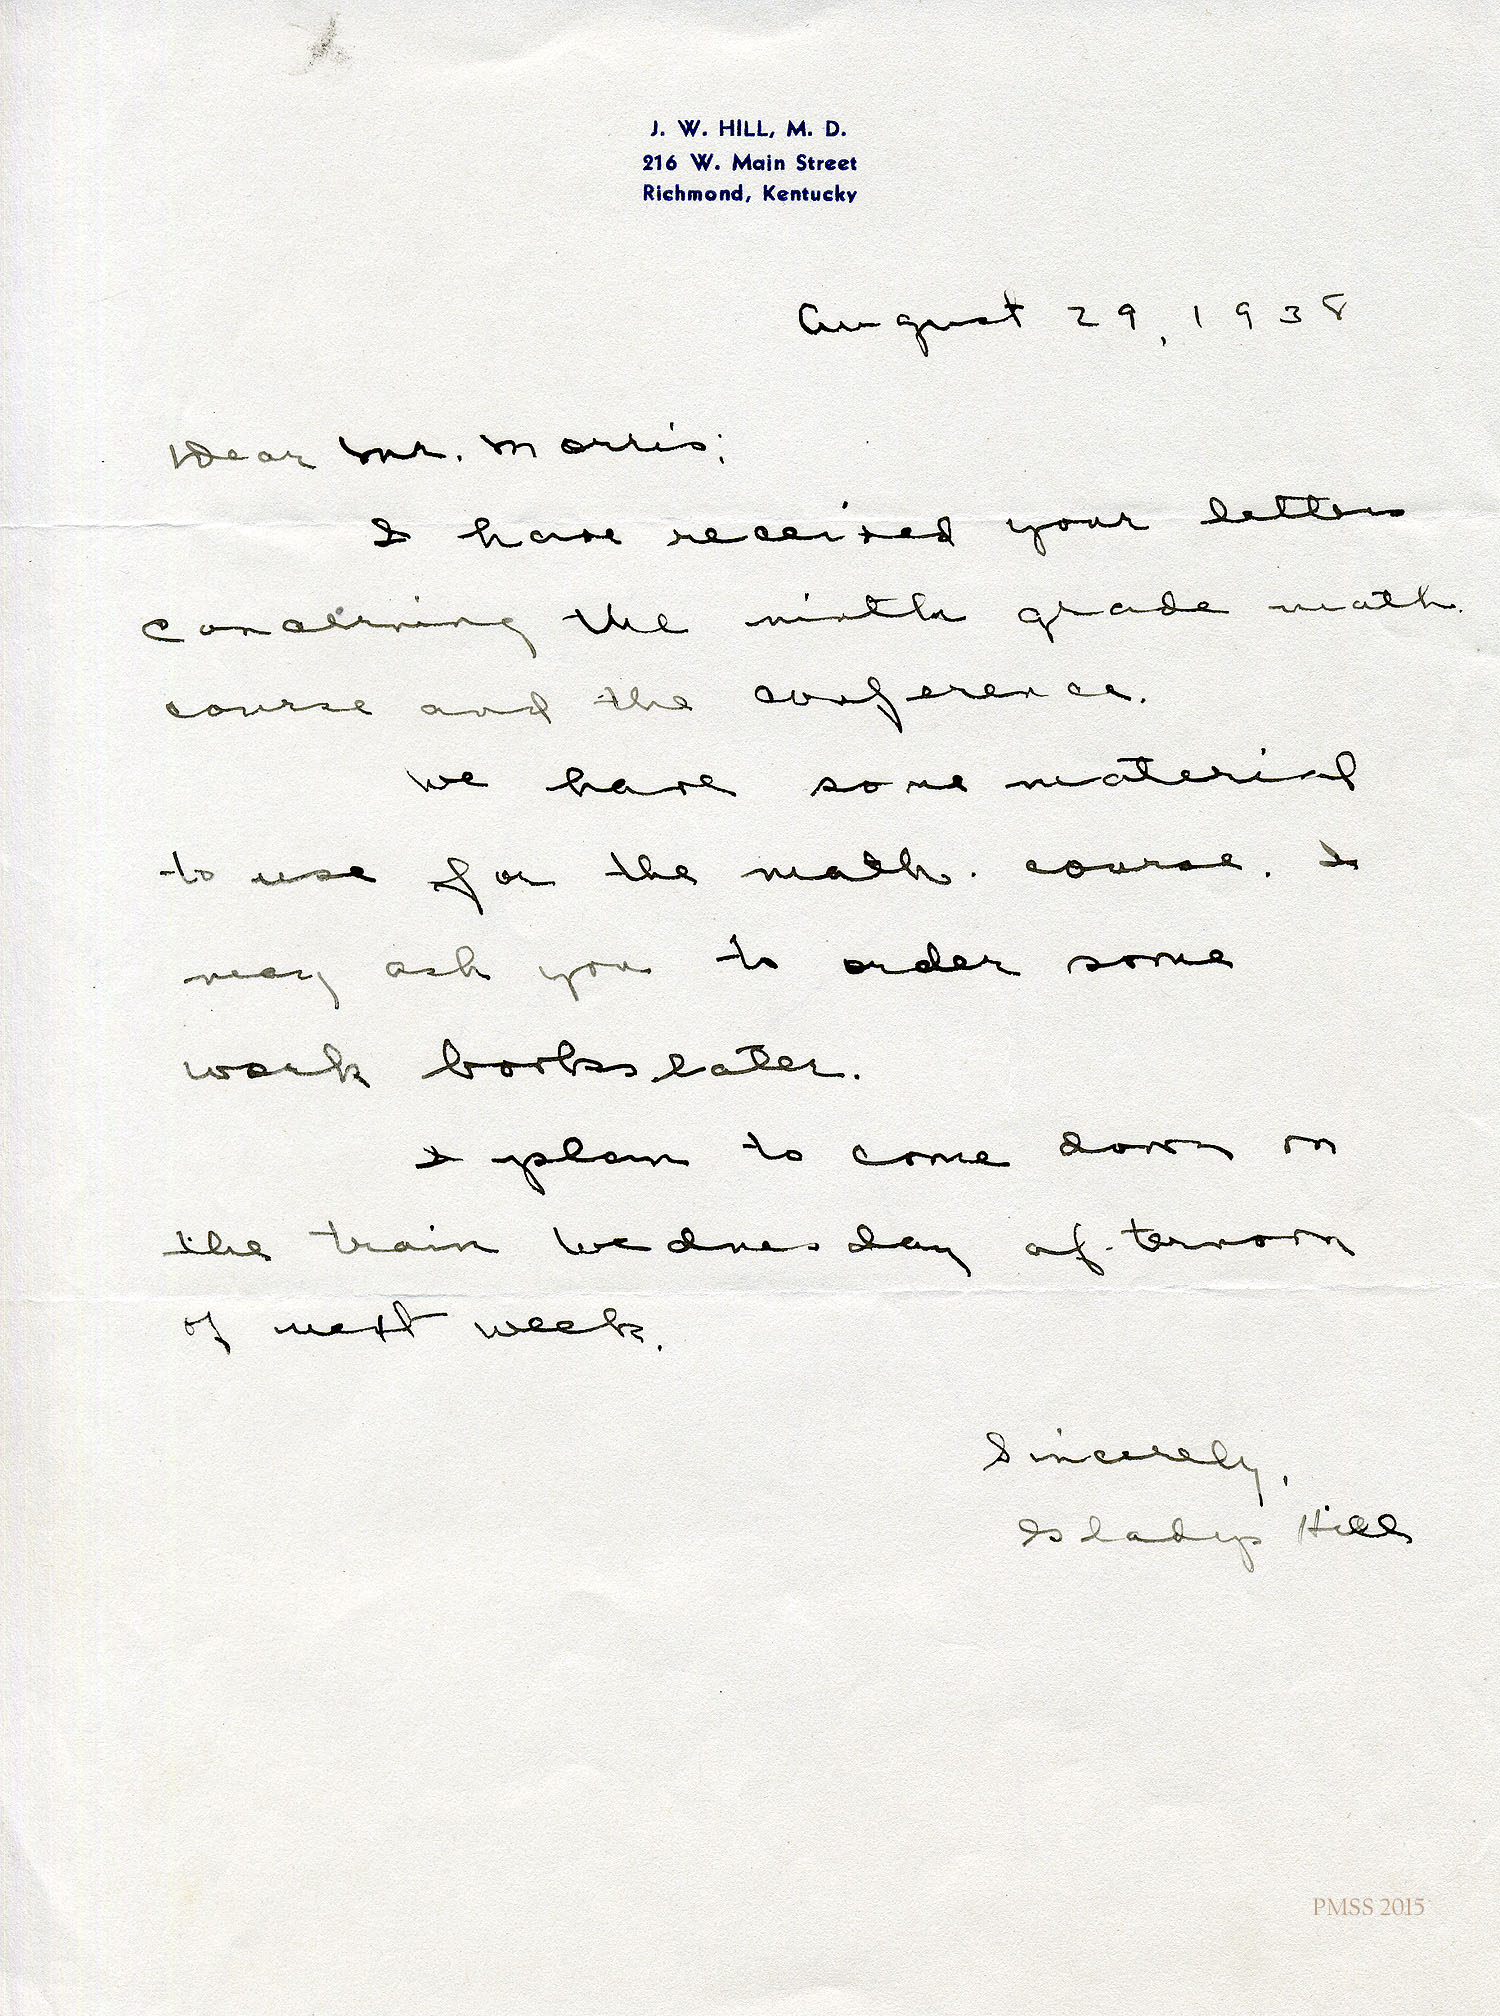 J. W. HILL, M. D.
216 W. Main Street
Richmond, Kentucky
August 29, 1938
Dear Mr. Morris;
I have received your letters
concerning the ninth grade math.
course and the conference.
We have some material
to use for the math. course. I
may ask you to order some
work books later.
I plan to come down on
the train Wednesday afternoon
of next week.
Sincerely,
Gladys Hill
PMSS 2015